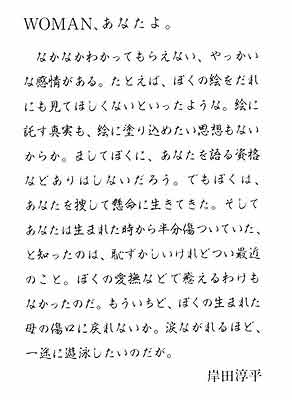 WOMAN、あなたよ。
なかなかわかってもらえない、やっかい
な感情がある。たとえば、ぼくの絵をだれ
にも見てほしくないといったような。絵に
託す真実も、絵に塗り込めたい思想もない
からか。ましてぼくに、あなたを語る資格
などありはしないだろう。でもぼくは、
あなたを捜して懸命に生きてきた。そして
あなたは生まれた時から半分傷ついていた、
と知ったのは、恥ずかしいけれどつい最近
のこと。ぼくの愛撫などで癒えるわけも
なかったのだ。もういちど、ぼくの生まれた
母の傷口に戻れないか。涙ながれるほど、
一途に遊泳したいのだが。
岸田淳平